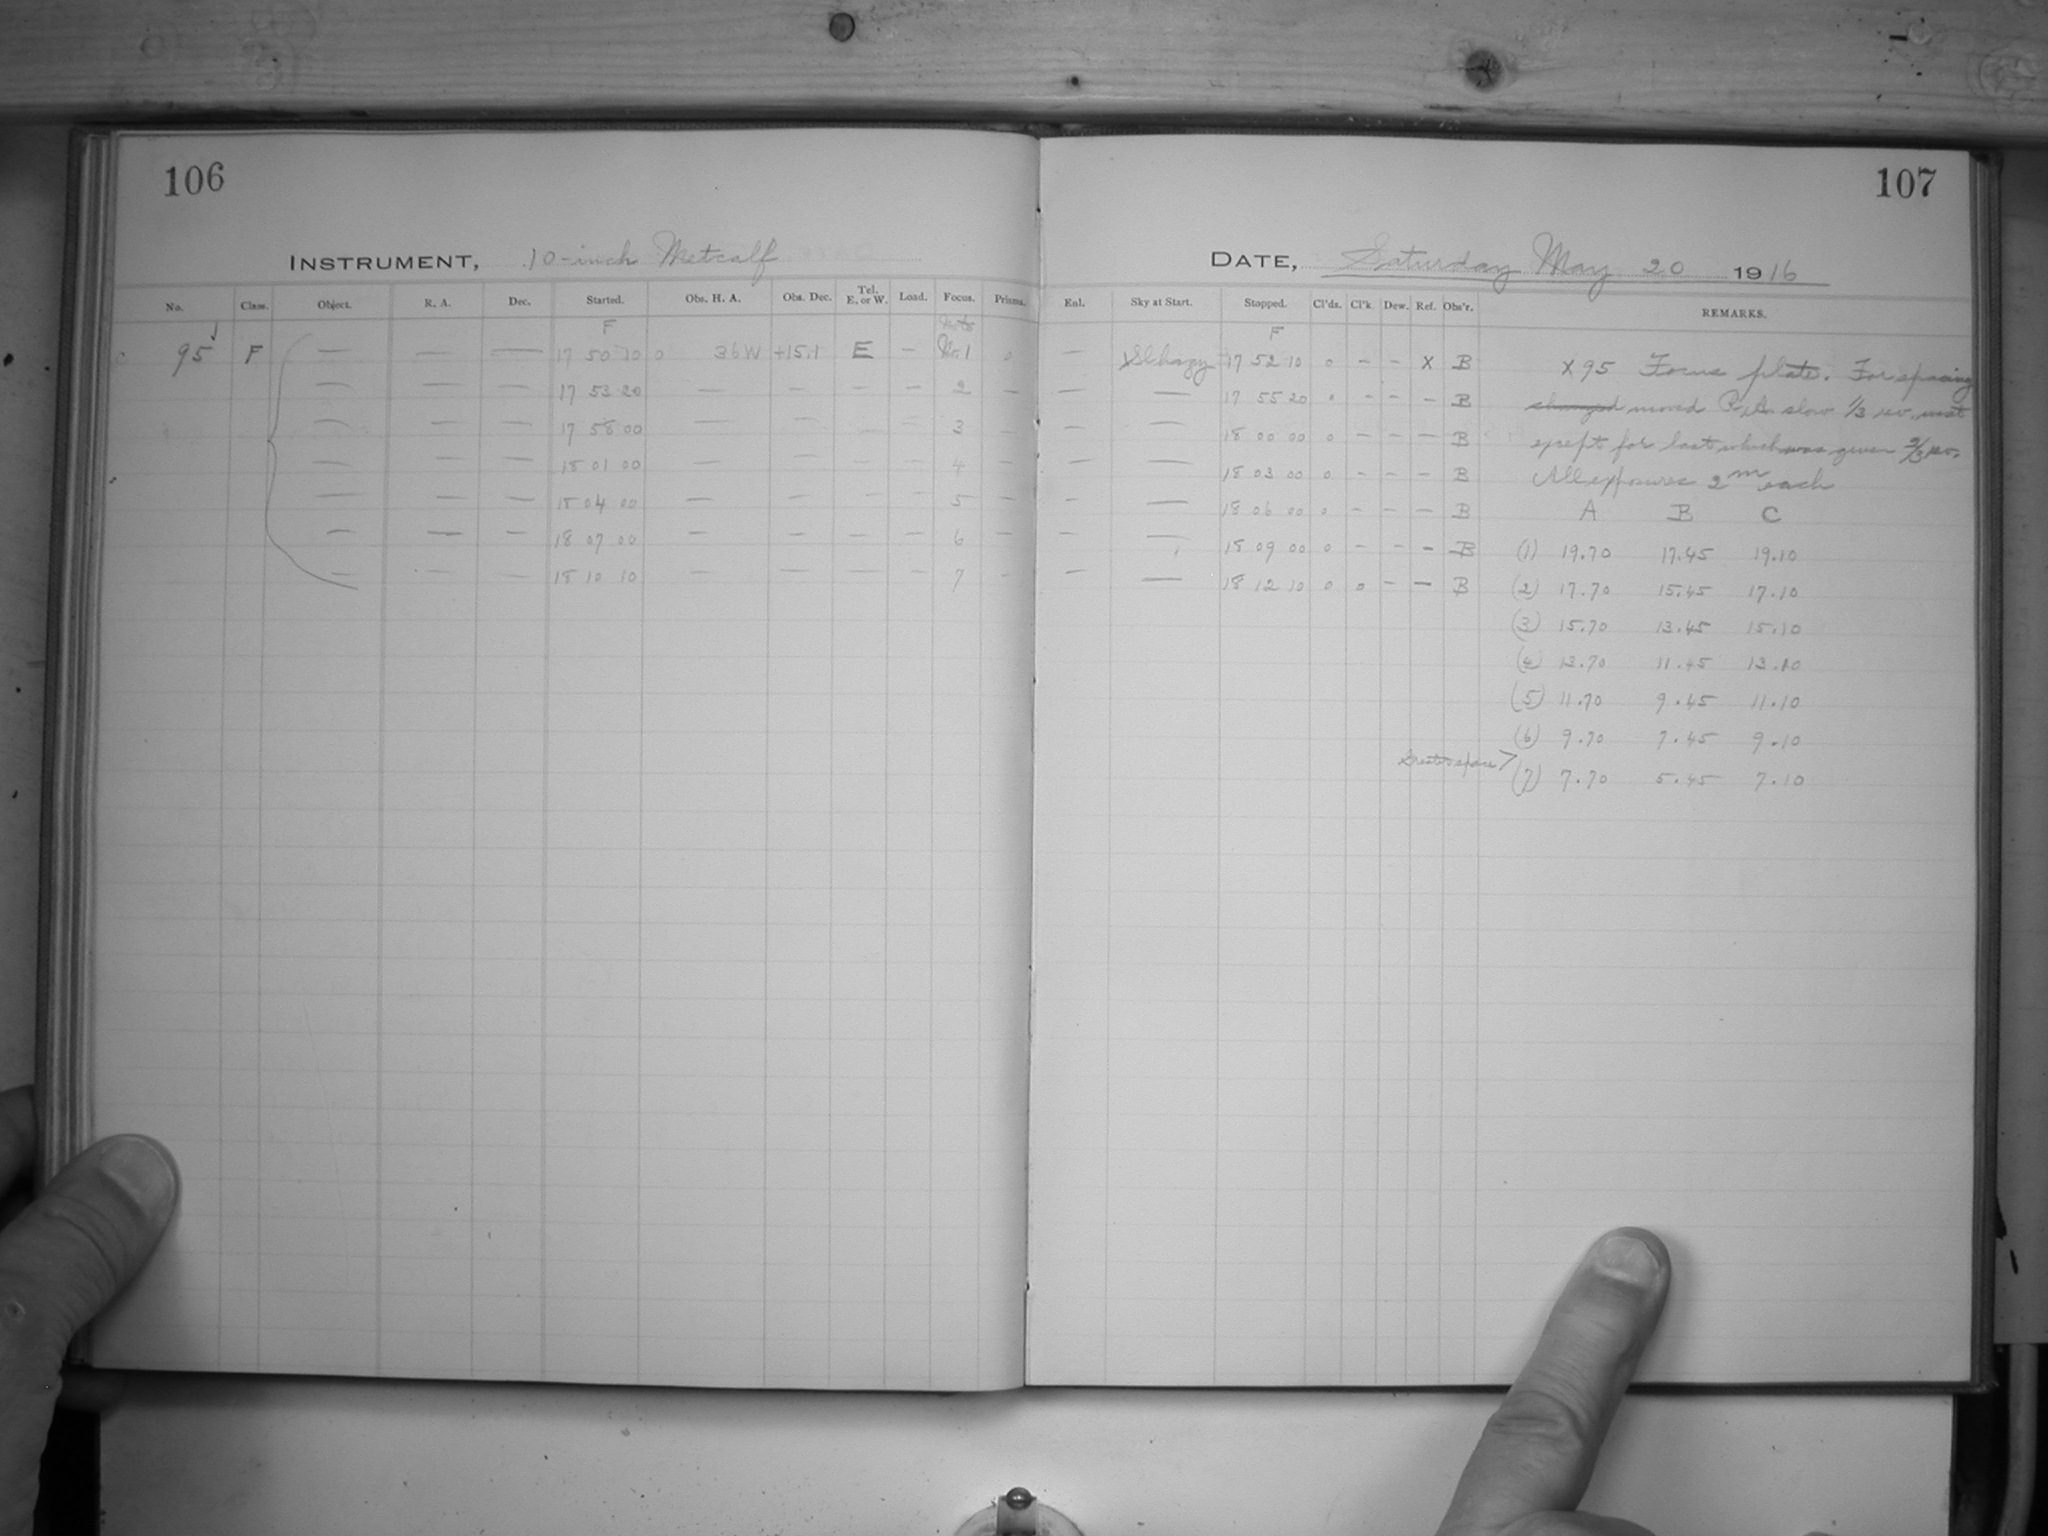 106
INSTRUMENT, 10-inch Metcalf
No. Class. Object. R. A. Dec. Started. Obs. H. A. Obs. Dec. Tel. E. or W. Load. Focus. Prisms.
F Note
C 95 F — — — 17 50 10 0 36W +15.1 E — No. 1 0
— — — 17 53 20 — — — — 2 —
— — — 17 58 00 — — — — 3 —
— — — 18 01 00 — — — — 4 —
— — — 18 04 00 — — — — 5 —
— — — 18 07 00 — — — — 6 —
— — — 18 10 10 — — — — 7 —
107
DATE, Saturday May 20 1916
Eal. Sky at Start. Stopped. Cl'ds. Cl'k. Dew. Ref. Obs'r. REMARKS.
F
— Sl hazy 17 52 10 0 — — X B X 95 Focus plate. For spacing
— — 17 55 20 0 — — — B changed moved R.A. slow 1/3 rev. west
— — 18 00 00 0 — — — B except for last which was given 2/3 rev.
— — 18 03 00 0 — — — B All exposures 2m each
— — 18 06 00 0 — — — B A B C
— — 18 09 00 0 — — — B (1) 19.70 17.45 19.10
— — 18 12 10 0 0 — — B (2) 17.70 15.45 17.10
(3) 15.70 13.45 15.10
(4) 13.70 11.45 13.10
(5) 11.70 9.45 11.10
(6) 9.70 7.45 9.10
Greater space >
(7) 7.70 5.45 7.10